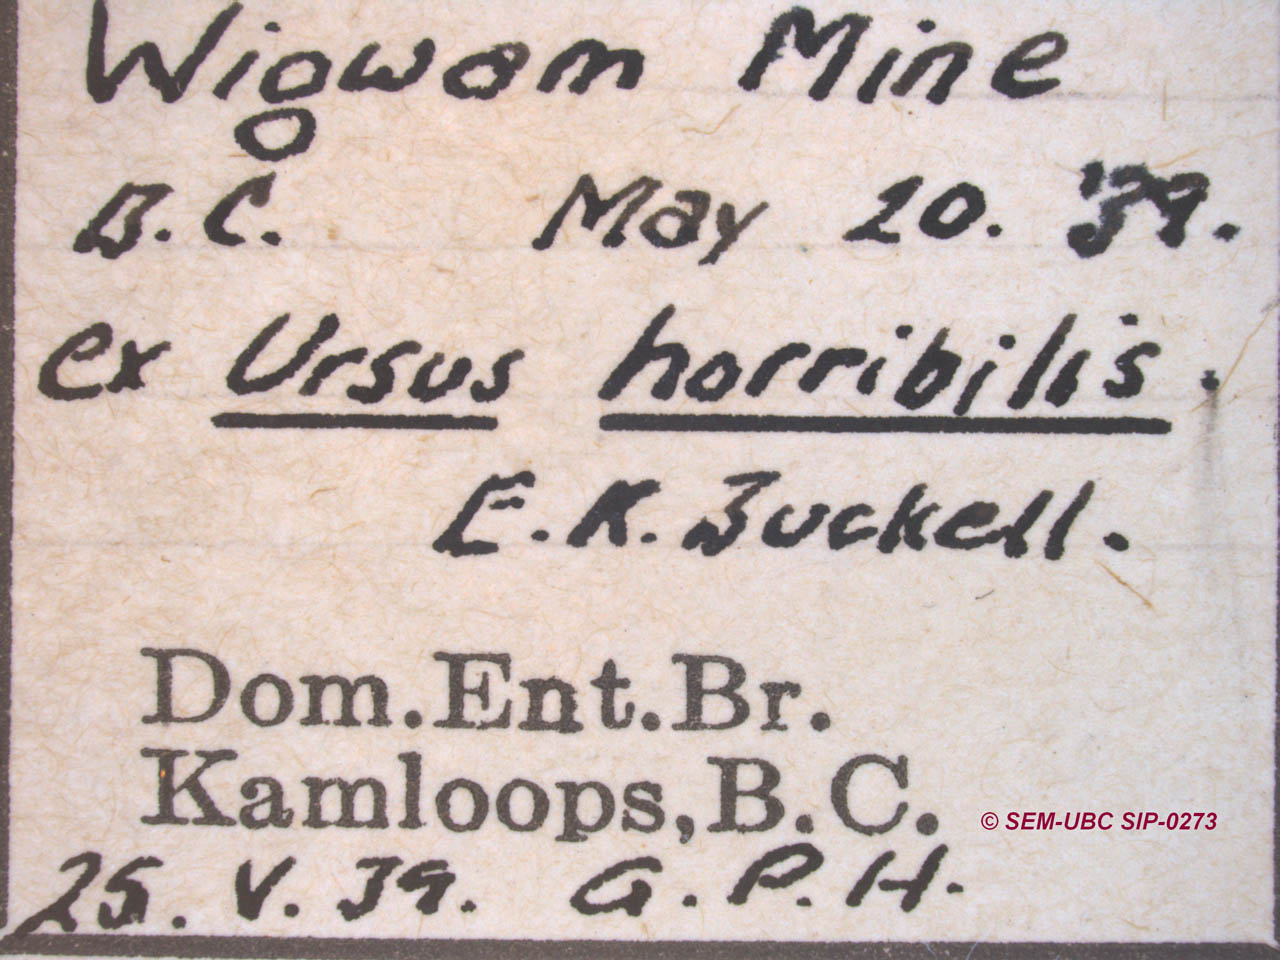 Wigwam Mine
B.C. May 20. '39.
ex Ursus horribilis.
E.K.Buckell.
Dom.Ent.Br.
Kamloops,B.C.
© SEM-UBC SIP-0273
25.V.39. G.P.H.